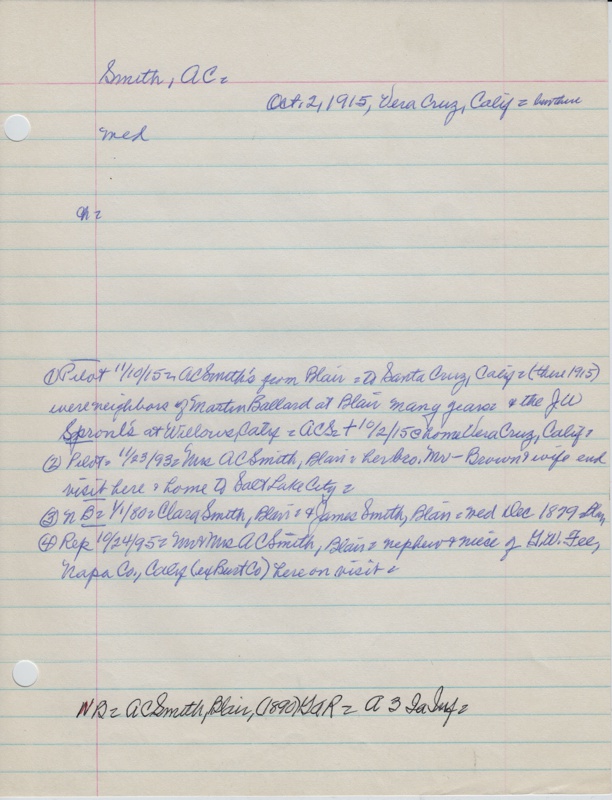 Smith, AC =
Oct. 2, 1915, Vera Cruz, Calif =
med
ch =
① Pilot 11/10/15 = AC Smith's from Blair = to Santa Cruz, Calif = (there 1915)
were neighbors of Martin Ballard at Blair many years = & the JW
Sproul's at Willows, Calif = ACS = † 10/2/15 @ home Vera Cruz, Calif =
② Pilot = 11/23/93 = Mrs AC Smith, Blair = her bro. Mr - Brown & wife end
visit here = home to Salt Lake City =
③ N B = 1/1/80 = Clara Smith, Blair = & James Smith, Blair = med Dec 1879
④ Rep 10/24/95 = Mr & Mrs AC Smith, Blair = nephew & niece of G.W. Fee,
Napa Co., Calif (ex Burt Co) here on visit =
NB = AC Smith, Blair, (1890) GAR = A 3 Ia Inf =